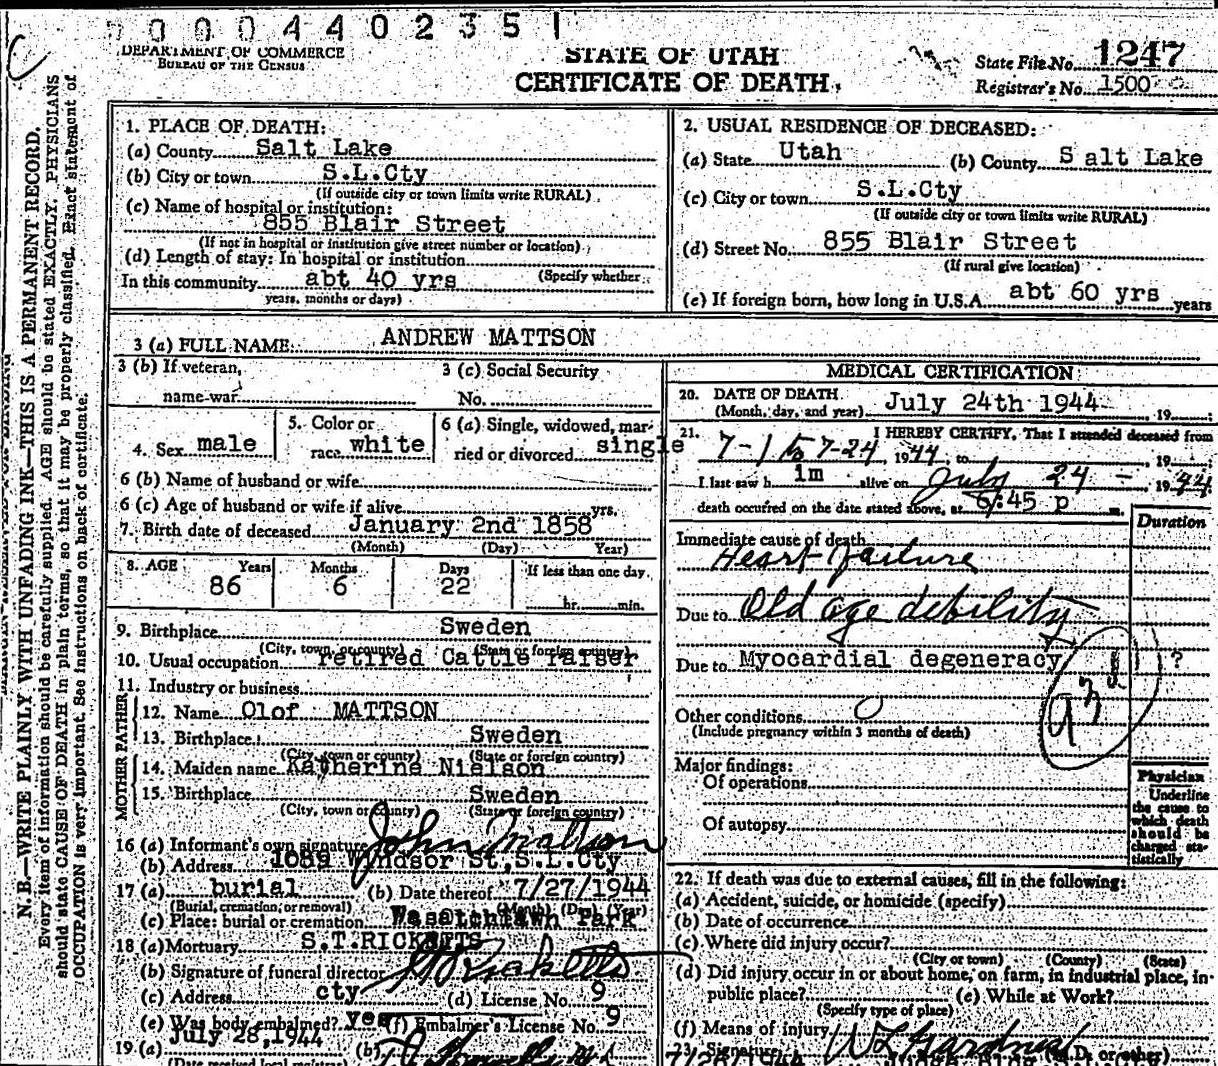 0 0 0 4 4 0 2 3 5 1
DEPARTMENT OF COMMERCE
BUREAU OF THE CENSUS
STATE OF UTAH
CERTIFICATE OF DEATH
State File No. 1247
Registrar's No. 1500
N.B.—WRITE PLAINLY WITH UNFADING INK—THIS IS A PERMANENT RECORD.
Every item of information should be carefully supplied. AGE should be stated EXACTLY. PHYSICIANS
should state CAUSE OF DEATH in plain terms, so that it may be properly classified. Exact statement of
OCCUPATION is very important. See instructions on back of certificate.
1. PLACE OF DEATH:
(a) County Salt Lake
(b) City or town S.L.Cty
(If outside city or town limits write RURAL)
(c) Name of hospital or institution:
855 Blair Street
(If not in hospital or institution give street number or location)
(d) Length of stay: In hospital or institution
(Specify whether
In this community abt 40 yrs
years, months or days)
2. USUAL RESIDENCE OF DECEASED:
(a) State Utah (b) County S alt Lake
(c) City or town S.L.Cty
(If outside city or town limits write RURAL)
(d) Street No. 855 Blair Street
(If rural give location)
(e) If foreign born, how long in U.S.A. abt 60 yrs years
3 (a) FULL NAME ANDREW MATTSON
3 (b) If veteran,
name war
3 (c) Social Security
No.
4. Sex male
5. Color or
race white
6 (a) Single, widowed, mar-
ried or divorced single
6 (b) Name of husband or wife
6 (c) Age of husband or wife if alive yrs.
7. Birth date of deceased January 2nd 1858
(Month) (Day) Year)
8. AGE Years Months Days If less than one day
86 6 22
hr. min.
9. Birthplace Sweden
(City, town, or county) (State or foreign country)
10. Usual occupation retired Cattle raiser
11. Industry or business
FATHER
12. Name Olof MATTSON
13. Birthplace Sweden
(City, town or county) (State or foreign country)
MOTHER
14. Maiden name Katherine Nielson
15. Birthplace Sweden
(City, town or county) (State or foreign country)
16 (a) Informant's own signature John Mattson
(b) Address 1089 Windsor St,S.L.Cty
17 (a) burial (b) Date thereof 7/27/1944
(Burial, cremation, or removal) (Month) (Day) (Year)
(c) Place: burial or cremation Wasatchlawn Park
18 (a) Mortuary S.T.RICKETTS
(b) Signature of funeral director S T Ricketts
(c) Address cty (d) License No. 9
(e) Was body embalmed? yes (f) Embalmer's License No. 9
19 (a) July 28,1944 (b)
(Date received local registrar)
MEDICAL CERTIFICATION
20. DATE OF DEATH
(Month, day, and year) July 24th 1944 19
21. I HEREBY CERTIFY, That I attended deceased from
7-1 to 7-24, 1944, to 19
I last saw h im alive on July 24 - 1944
death occurred on the date stated above, at 6:45 p m.
Duration
Immediate cause of death
Heart failure
Due to Old age debility
Due to Myocardial degeneracy ?
93d
Other conditions 0
(Include pregnancy within 3 months of death)
Major findings:
Of operations
Of autopsy
Physician
Underline
the cause to
which death
should be
charged sta-
tistically
22. If death was due to external causes, fill in the following:
(a) Accident, suicide, or homicide (specify)
(b) Date of occurrence
(c) Where did injury occur?
(City or town) (County) (State)
(d) Did injury occur in or about home, on farm, in industrial place, in
public place? (e) While at Work?
(Specify type of place)
(f) Means of injury
23. Signature (M.D. or other)